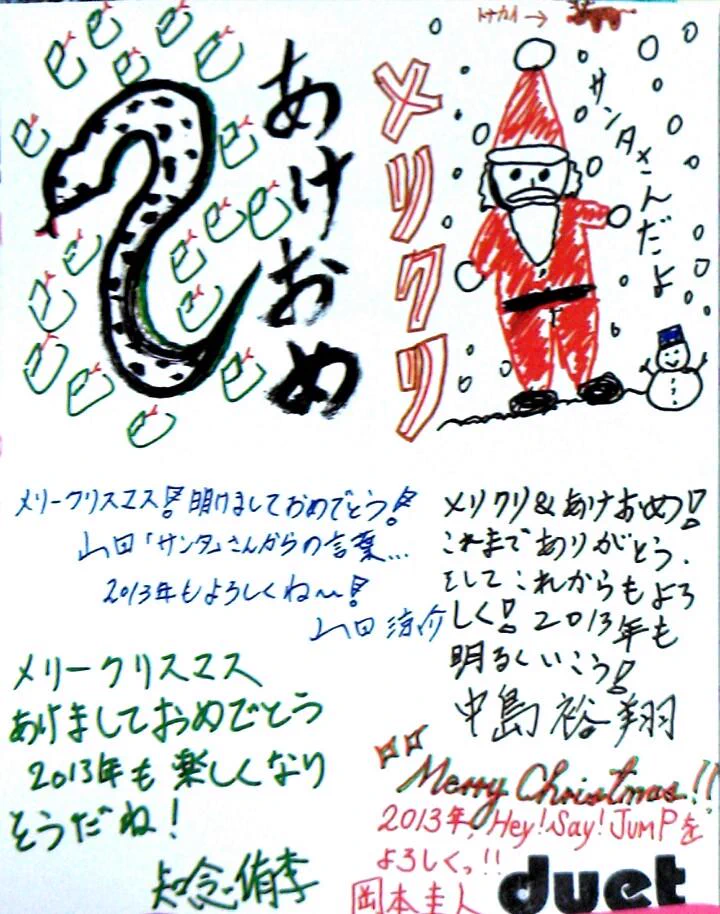 あけおめ
メリクリ
トナカイ→
サンタさんだよ
メリークリスマス!明けましておめでとう!
山田「サンタ」さんからの言葉…
2013年もよろしくね〜!
山田涼介
メリクリ&あけおめ!
これまでありがとう.
そしてこれからもよろ
しく!2013年も
明るくいこう!
中島裕翔
メリークリスマス
あけましておめでとう
2013年も楽しくなり
そうだね!
知念侑李
Merry Christmas!!
2013年,Hey!Say!JUMPを
よろしくっ!!
岡本圭人
duet